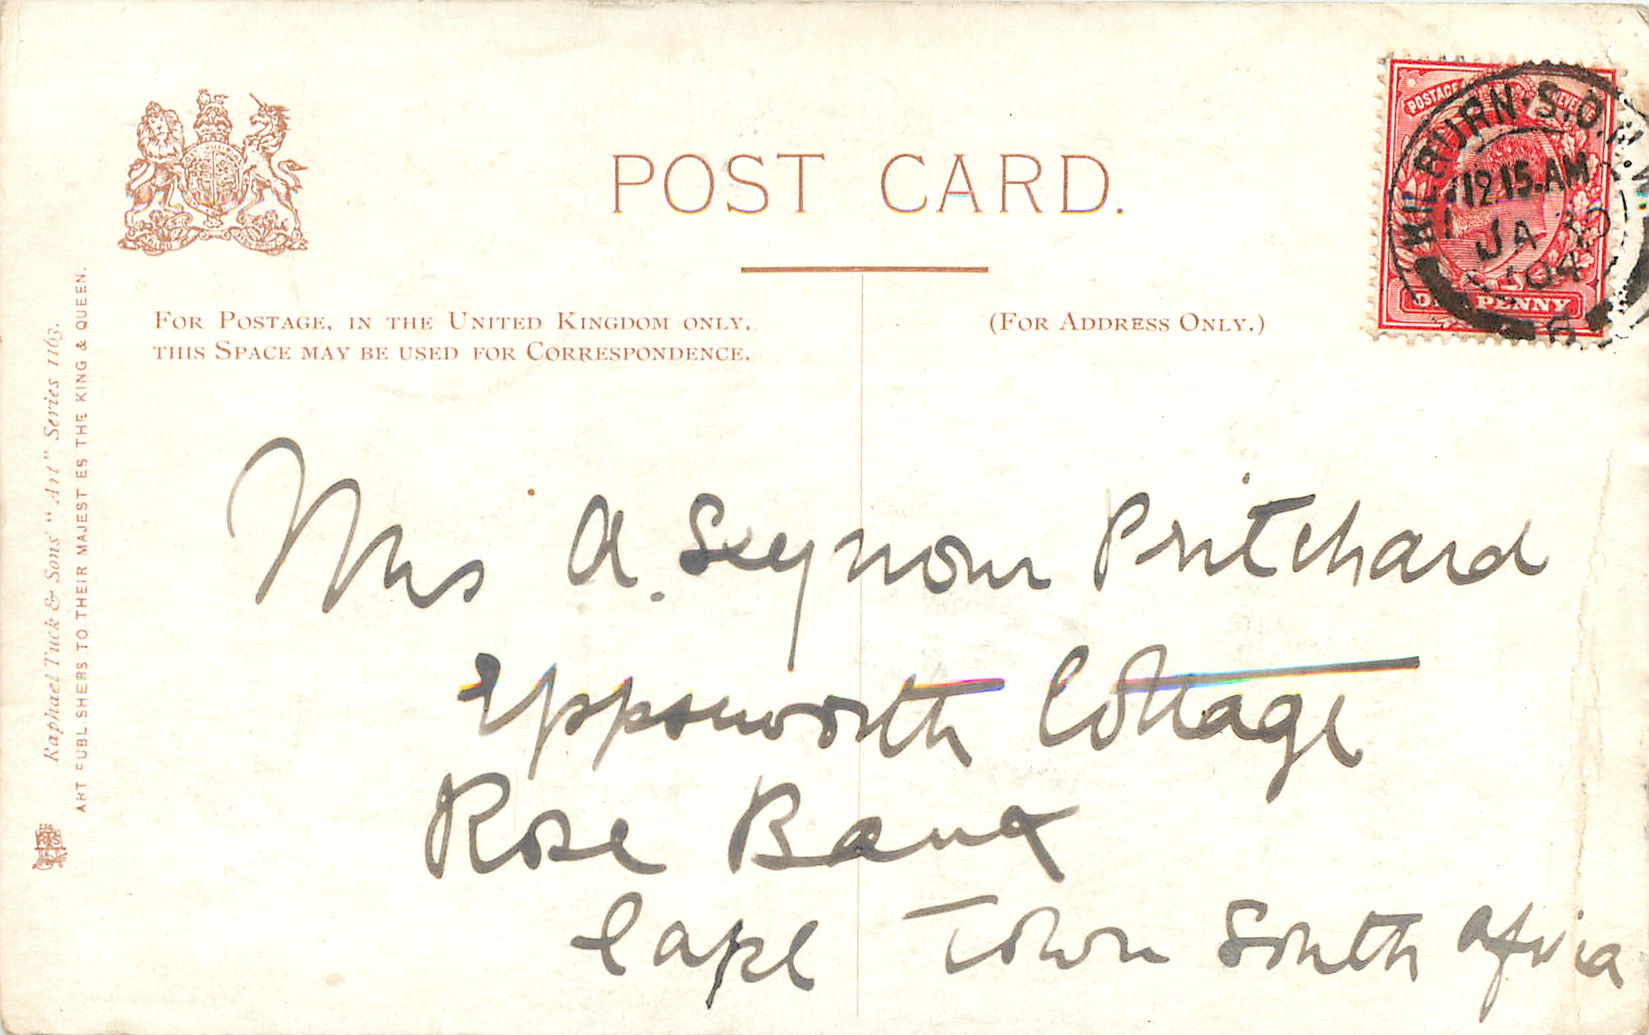 POST CARD.
FOR POSTAGE, IN THE UNITED KINGDOM ONLY,
THIS SPACE MAY BE USED FOR CORRESPONDENCE.
(FOR ADDRESS ONLY.)
POSTAGE
KILBURN. S.O.
12.15.AM
JA
04
ONE PENNY
Mrs A. Seymour Pritchard
Eppsworth Cottage
Rose Bank
Cape Town South Africa
Raphael Tuck & Sons' "Art" Series 1163.
ART PUBLISHERS TO THEIR MAJESTIES THE KING & QUEEN.